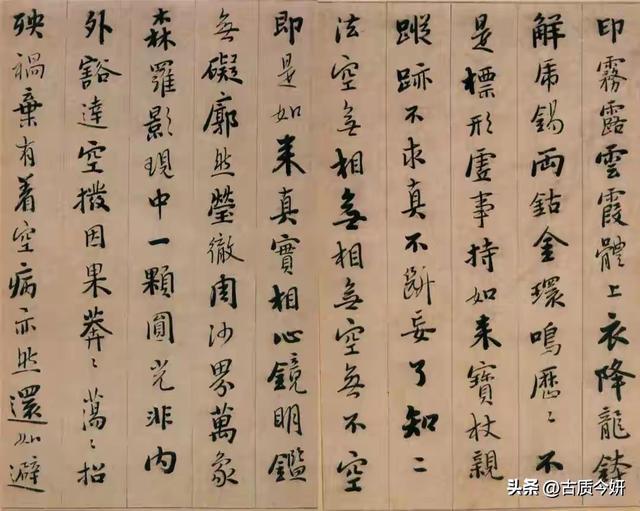 印霧露雲霞體上衣降龍鉢
解虎錫両鈷金環鳴歷〻不
是標形虛事持如來寶杖親
蹤跡不求真不斷妄了知二
法空無相無相無空無不空
即是如來真實相心鏡明鑑
無礙廓然瑩徹周沙界萬象
森羅影現中一顆圓光非內
外豁達空撥因果莽〻蕩〻招
殃禍棄有着空病亦然還如避
头条 @古质今妍